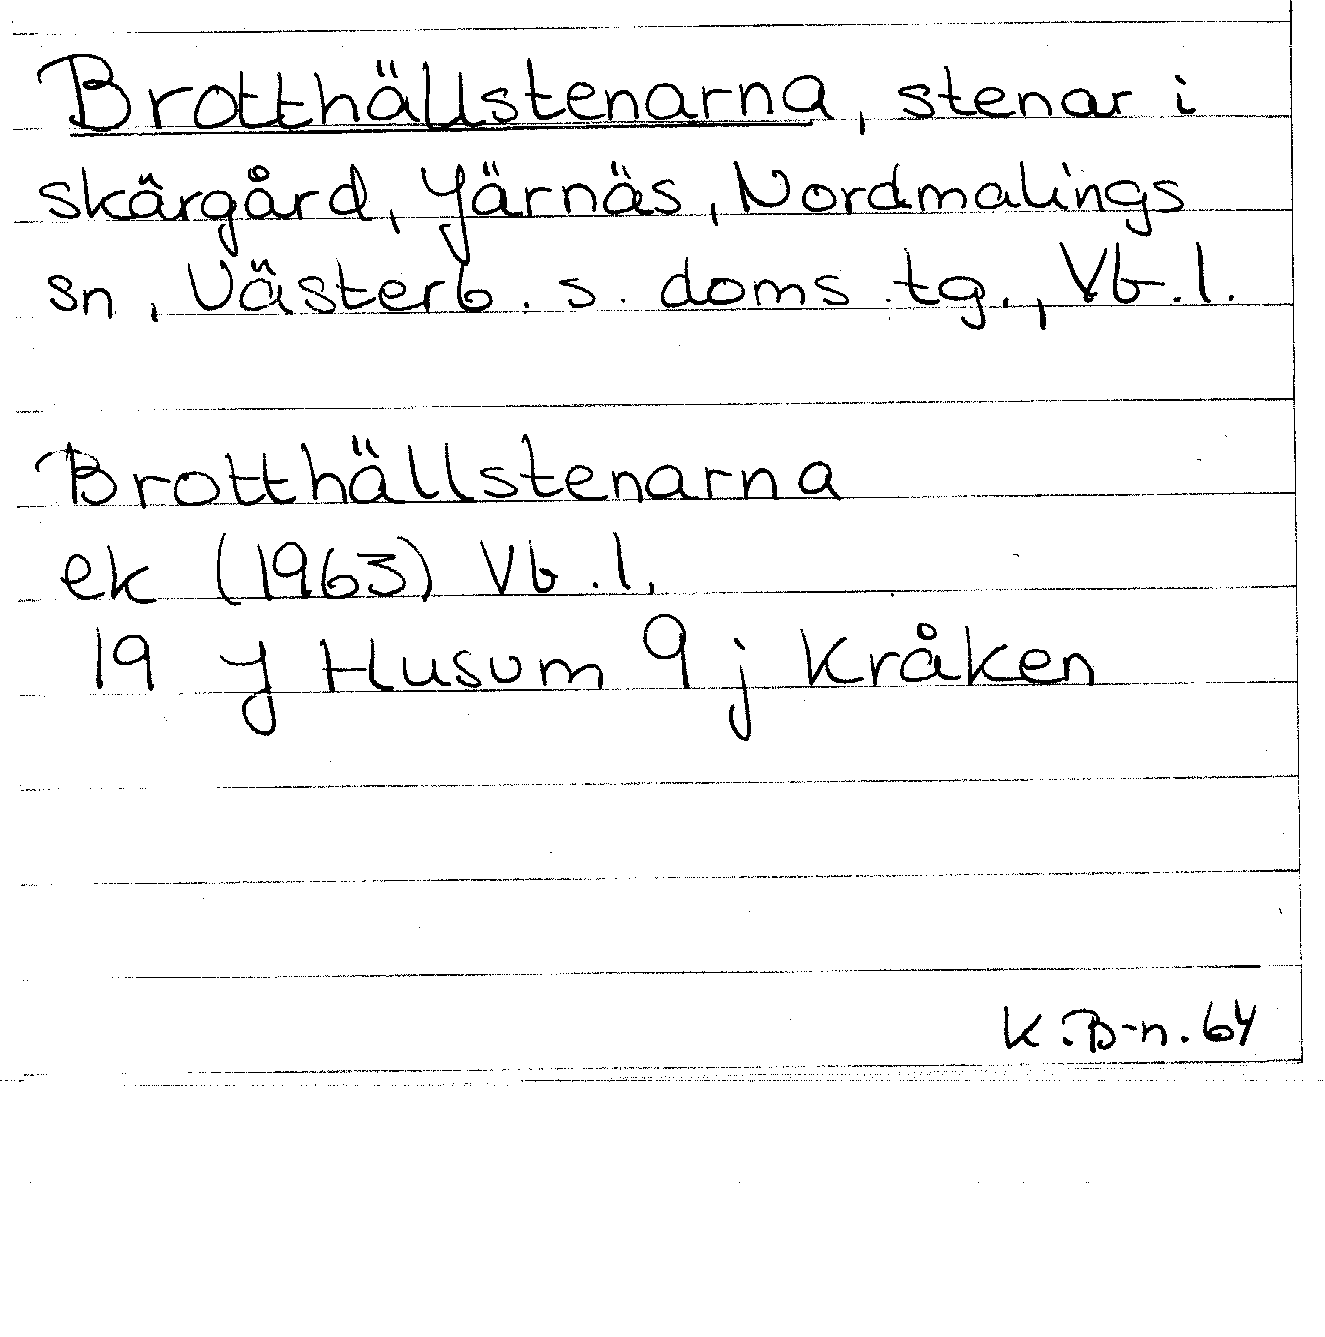 Brotthällstenarna, stenar i
skärgård, Järnäs, Nordmalings
sn, Västerb. s. doms. tg., Vb. l.
Brotthällstenarna
ek (1963) Vb. l.
19 J Husum 9 j Kråken
K. B-n. 64